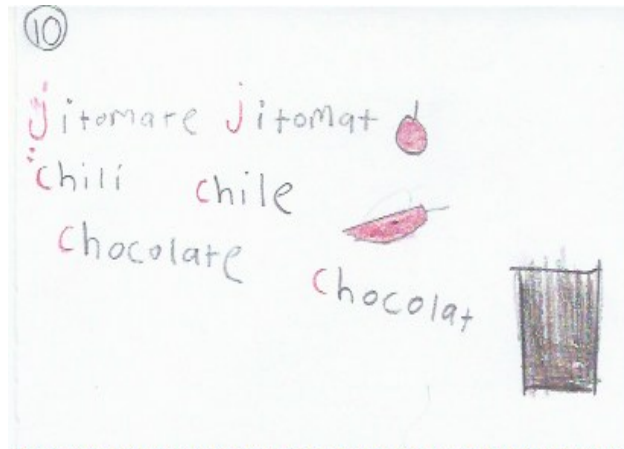 10
jitomate jitomat
chili chile
chocolate
chocolat